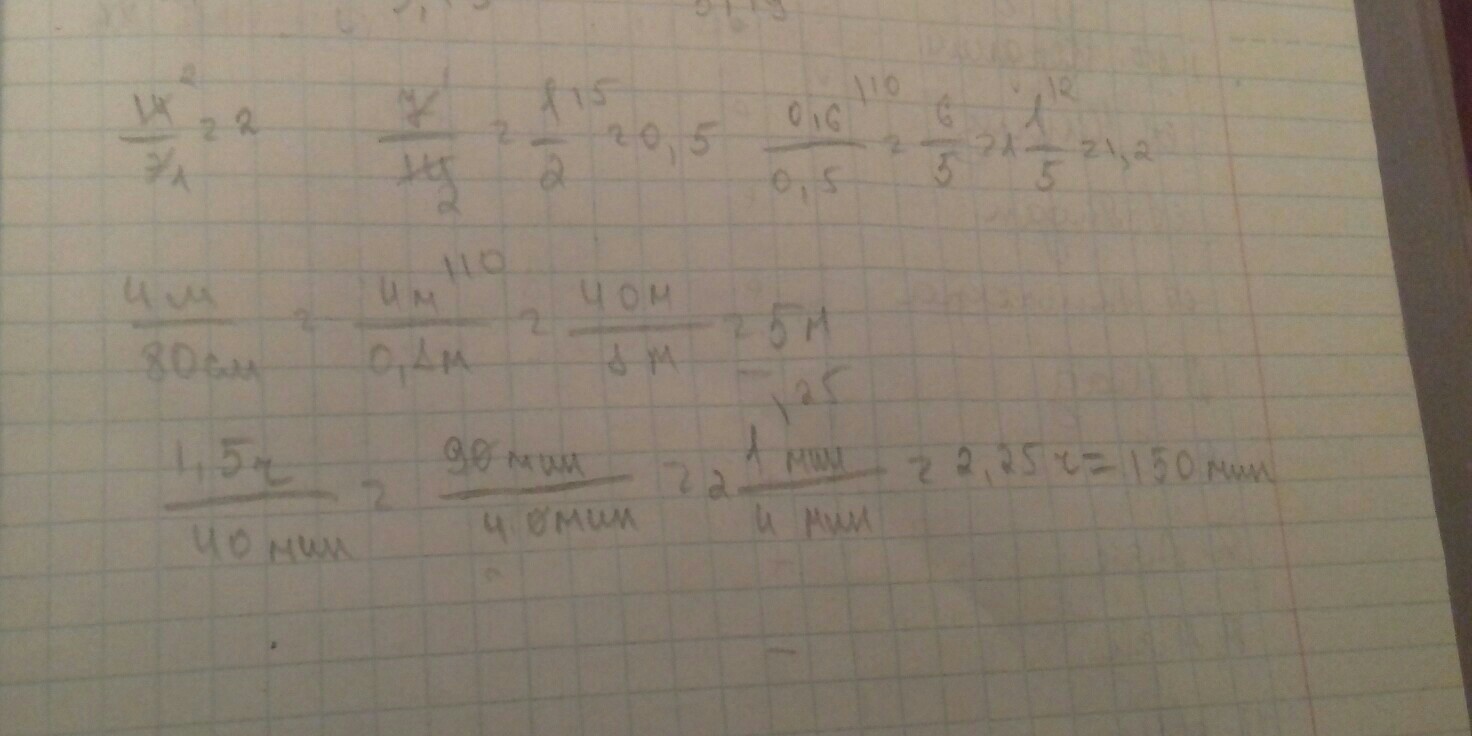 14²/7₁ = 2   7¹/14₂ = 1|5/2 = 0,5   0,6|10/0,5 = 6/5 = 1 1|2/5 = 1,2
4м/80см = 4м|10/0,8м = 40м/8м = 5м
1,5ч/40мин = 90мин/40мин = 2 1|25 мин/4 мин = 2,25ч = 150мин